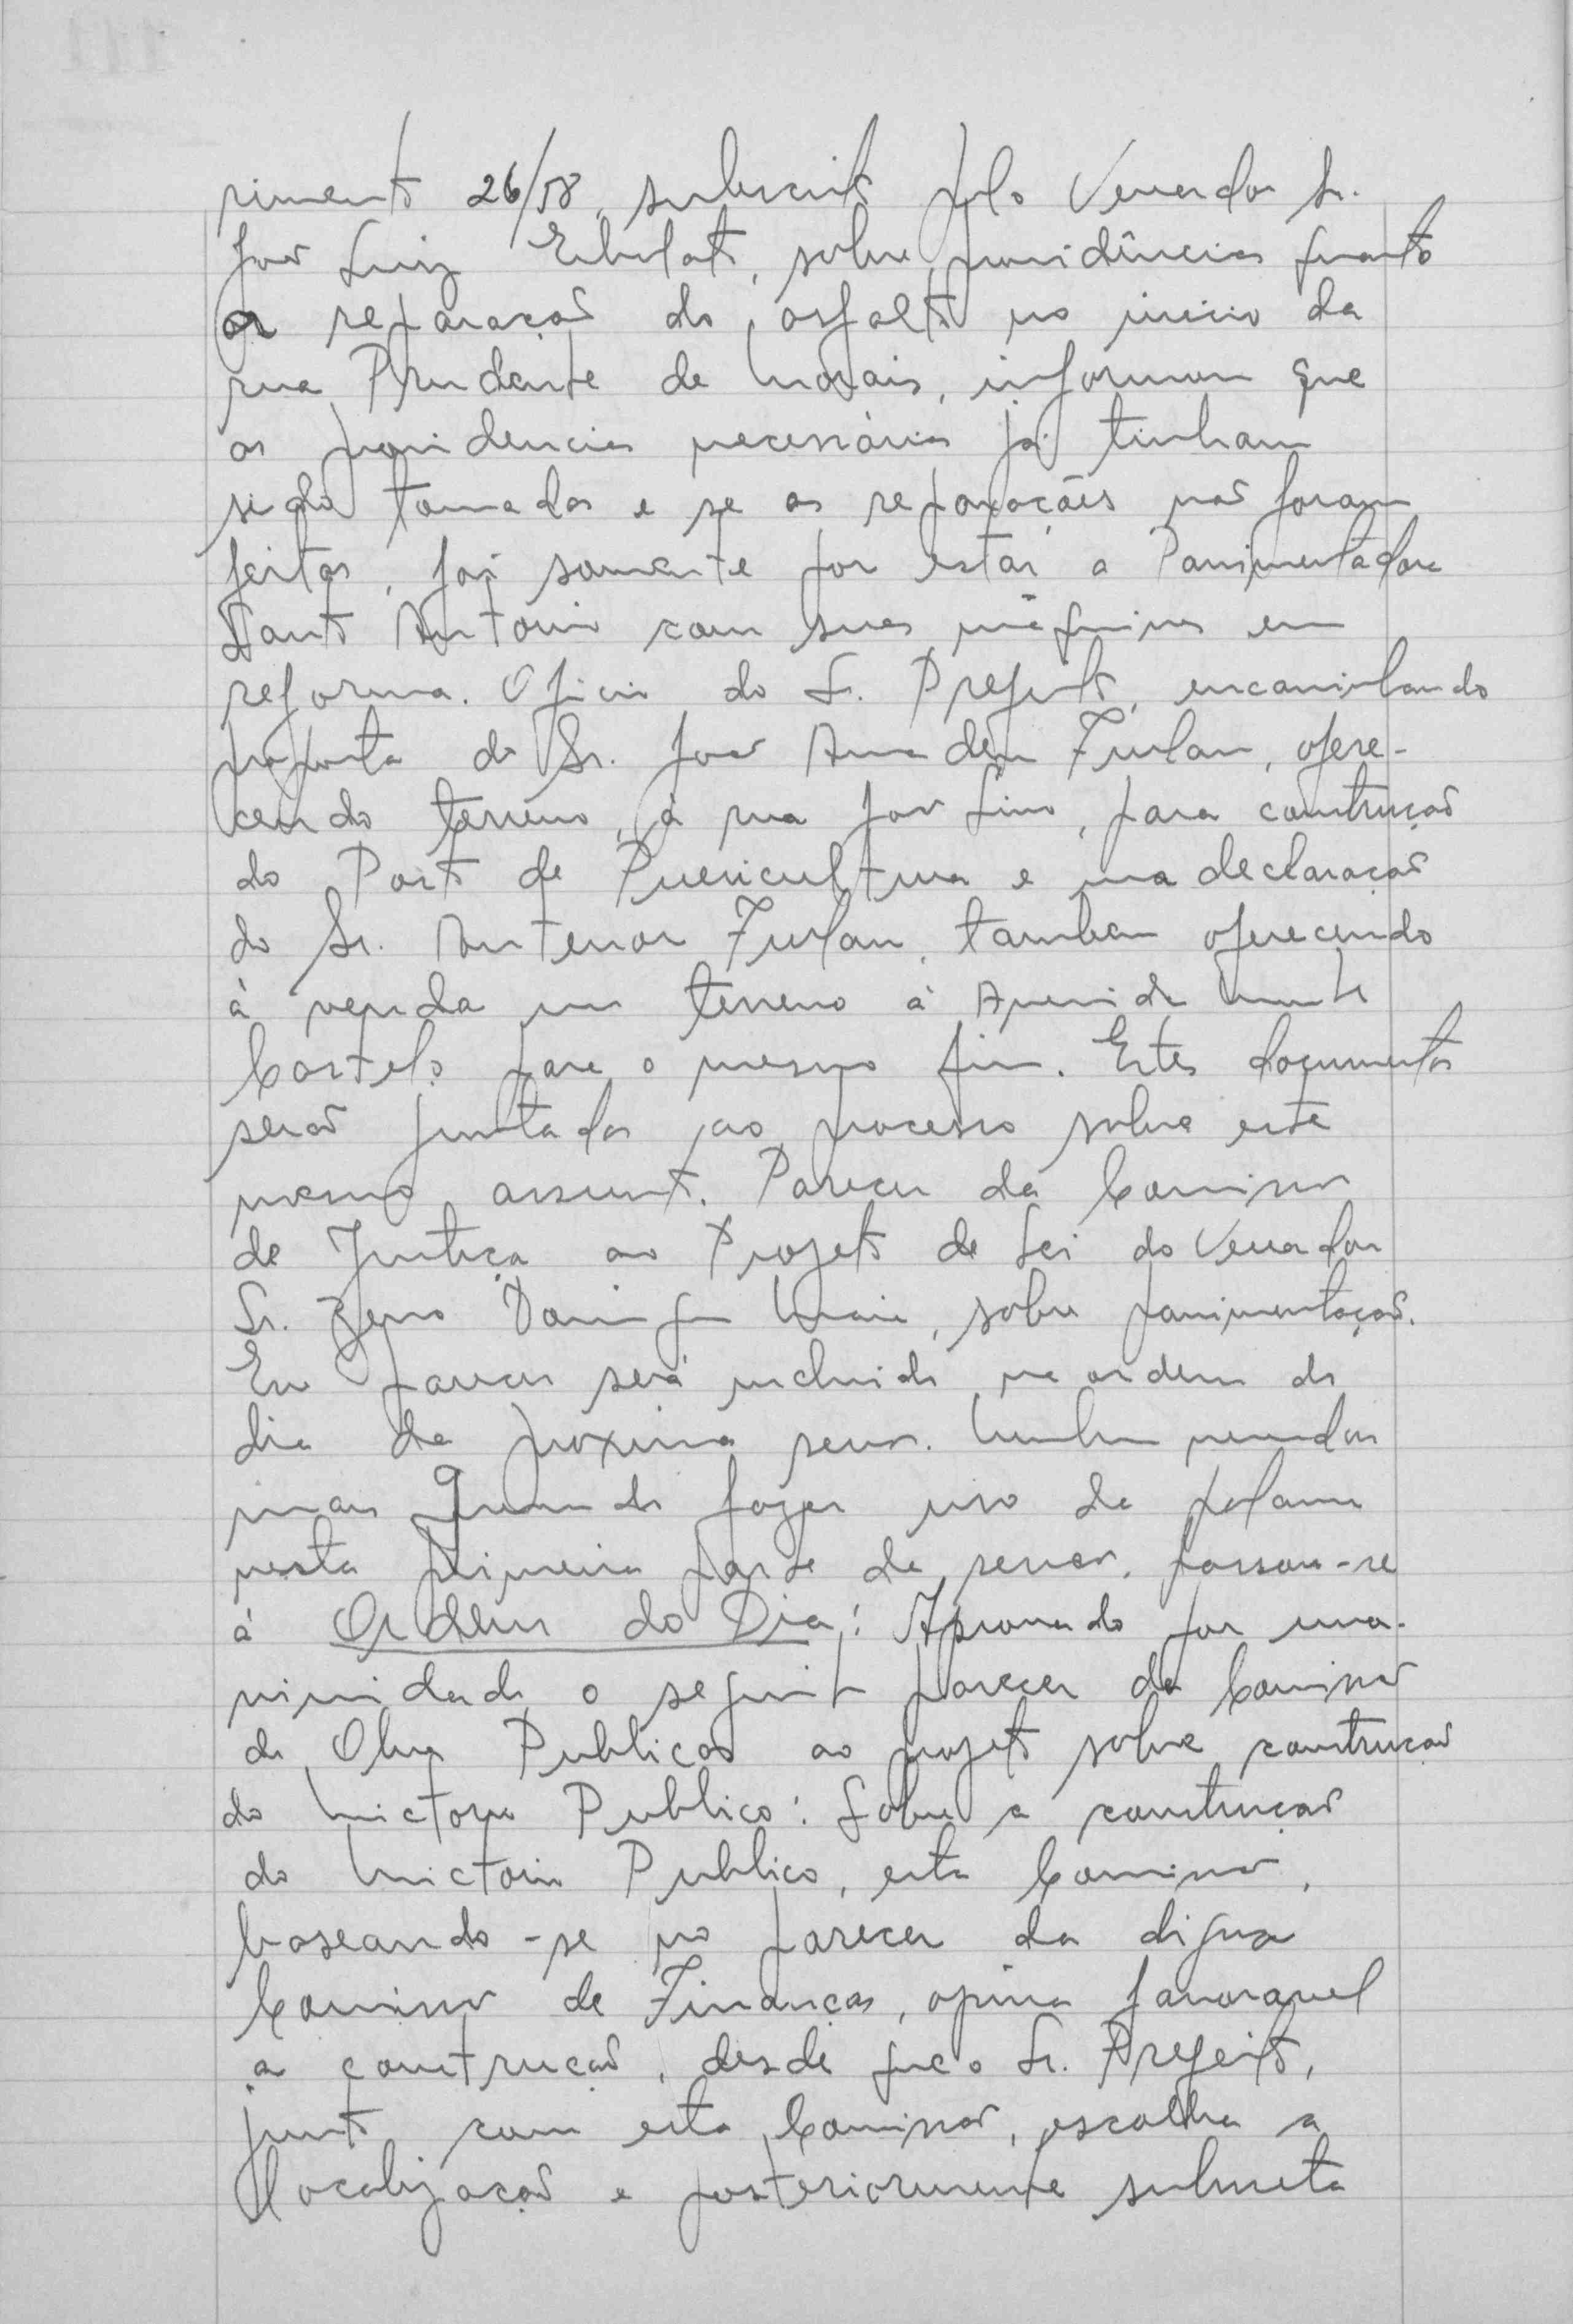 rimento 26/58, subscrito pelo Vereador Sr.
José Luiz sobre providências quanto
a reparação do asfalto no inicio da
rua Prudente de Morais, informou que
as providencias necessárias já tinham
sido tomadas e se as reparações não foram
feitas, foi somente por estar a Pavimentadora
Santo Antonio com suas máquinas em
reforma. Oficio do Sr. Prefeito, encaminhando
proposta do Sr. José Amadeu Furlan, ofere-
cendo terreno, à rua José Lino, para construção
do Posto de Puericultura e uma declaração
do Sr. Antenor Furlan, tambem oferecendo
à venda um terreno à Avenida Monte
Castelo para o mesmo fim. Estes documentos
serão juntados ao processo sobre este
mesmo assunto. Parecer da Comissão
de Justiça ao Projeto de Lei do Vereador
Sr. Zeno Maia, sobre pavimentação.
Em parecer será incluido na ordem do
dia da proxima sessão. Nenhum vereador
mais querendo fazer uso da palavra
nesta primeira parte da sessão, passou-se
à Ordem do Dia: Aprovado por una-
nimidade o seguinte parecer da Comissão
de Obras Publicas ao projeto sobre construção
do Mictorio Publico: Sobre a construção
do Mictorio Publico, esta Comissão,
baseando-se no parecer da digna
Comissão de Finanças, opina favoravel
a construção, desde que o Sr. Prefeito,
junto com esta Comissão, escolha a
localização e posteriormente submeta